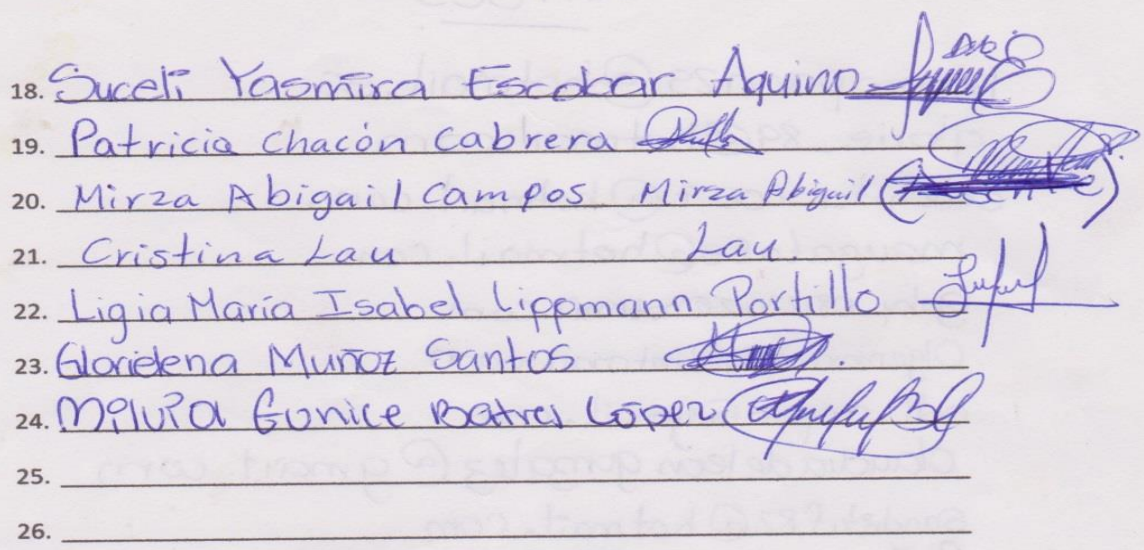 18. Suceli Yasmira Escobar Aquino
19. Patricia Chacón Cabrera
20. Mirza Abigail Campos Mirza Abigail
21. Cristina Lau Lau
22. Ligia María Isabel Lippmann Portillo
23. Glorielena Muñoz Santos
24. Milvia Eunice Batres López
25.
26.